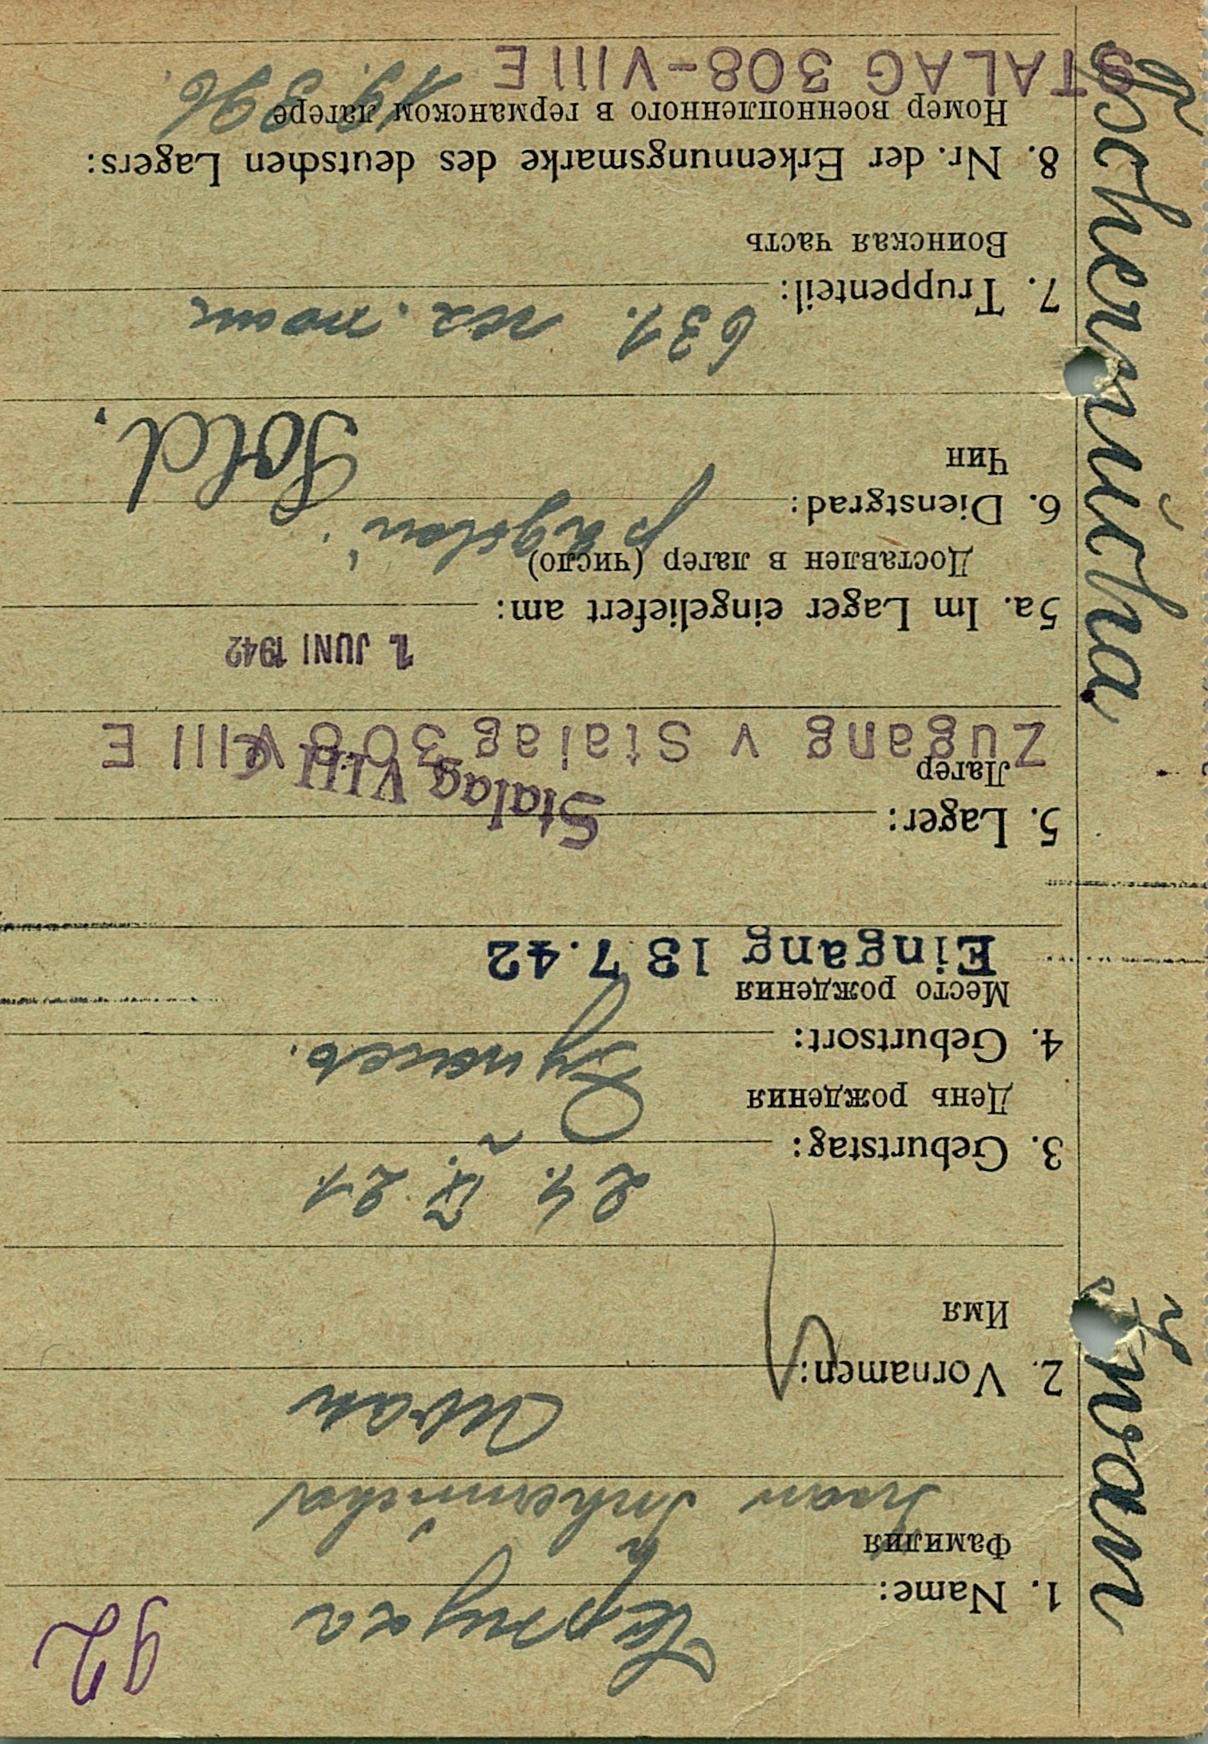 92
1. Name: Чернуха
Фамилия
Iwan Tschernücha
2. Vornamen: Иван
Имя
3. Geburtstag: 24. IV. 21.
День рождения
4. Geburtsort:
Место рождения
Eingang 13 7.42
5. Lager: Stalag VIII
Лагер
Zugang v Stalag 308 VIII E
1. JUNI 1942
5a. Im Lager eingeliefert am:
Доставлен в лагер (число)
6. Dienstgrad: рядовой Sold.
Чин
7. Truppenteil: 631.
Воинская часть
8. Nr. der Erkennungsmarke des deutschen Lagers:
Номер военнопленного в германском лагере 19.396.
STALAG 308-VIII E
Tschernücha Iwan